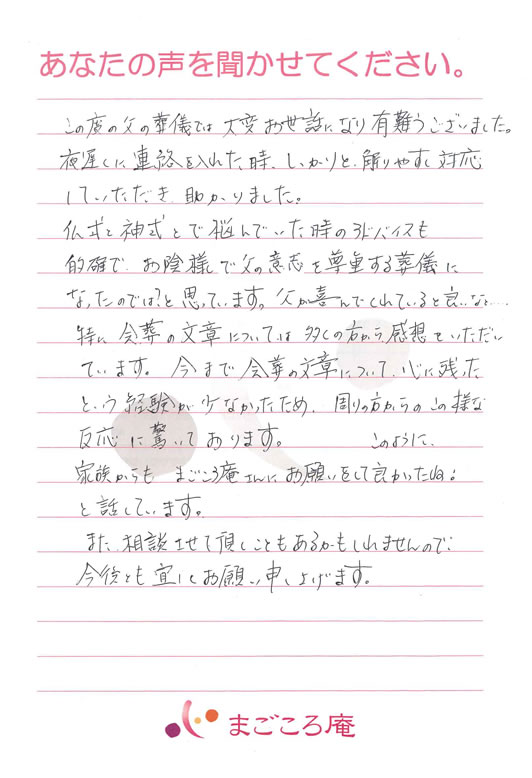 あなたの声を聞かせてください。
この度の父の葬儀では大変お世話になり有難うございました。
夜遅くに連絡を入れた時、しっかりと解りやすく対応
していただき助かりました。
仏式と神式とで悩んでいた時のアドバイスも
的確で、お陰様で父の意志を尊重する葬儀に
なったのでは?と思っています。父が喜んでくれていると良いなと…
特に会葬の文章については多くの方から感想をいただい
ています。今まで会葬の文章について、心に残った
という経験が少なかったため、周りの方からのこの様な
反応に驚いております。 このように、
家族からもまごころ庵さんにお願いをして良かったね。
と話しています。
また、相談させて頂くこともあるかもしれませんので、
今後とも宜しくお願い申し上げます。
まごころ庵